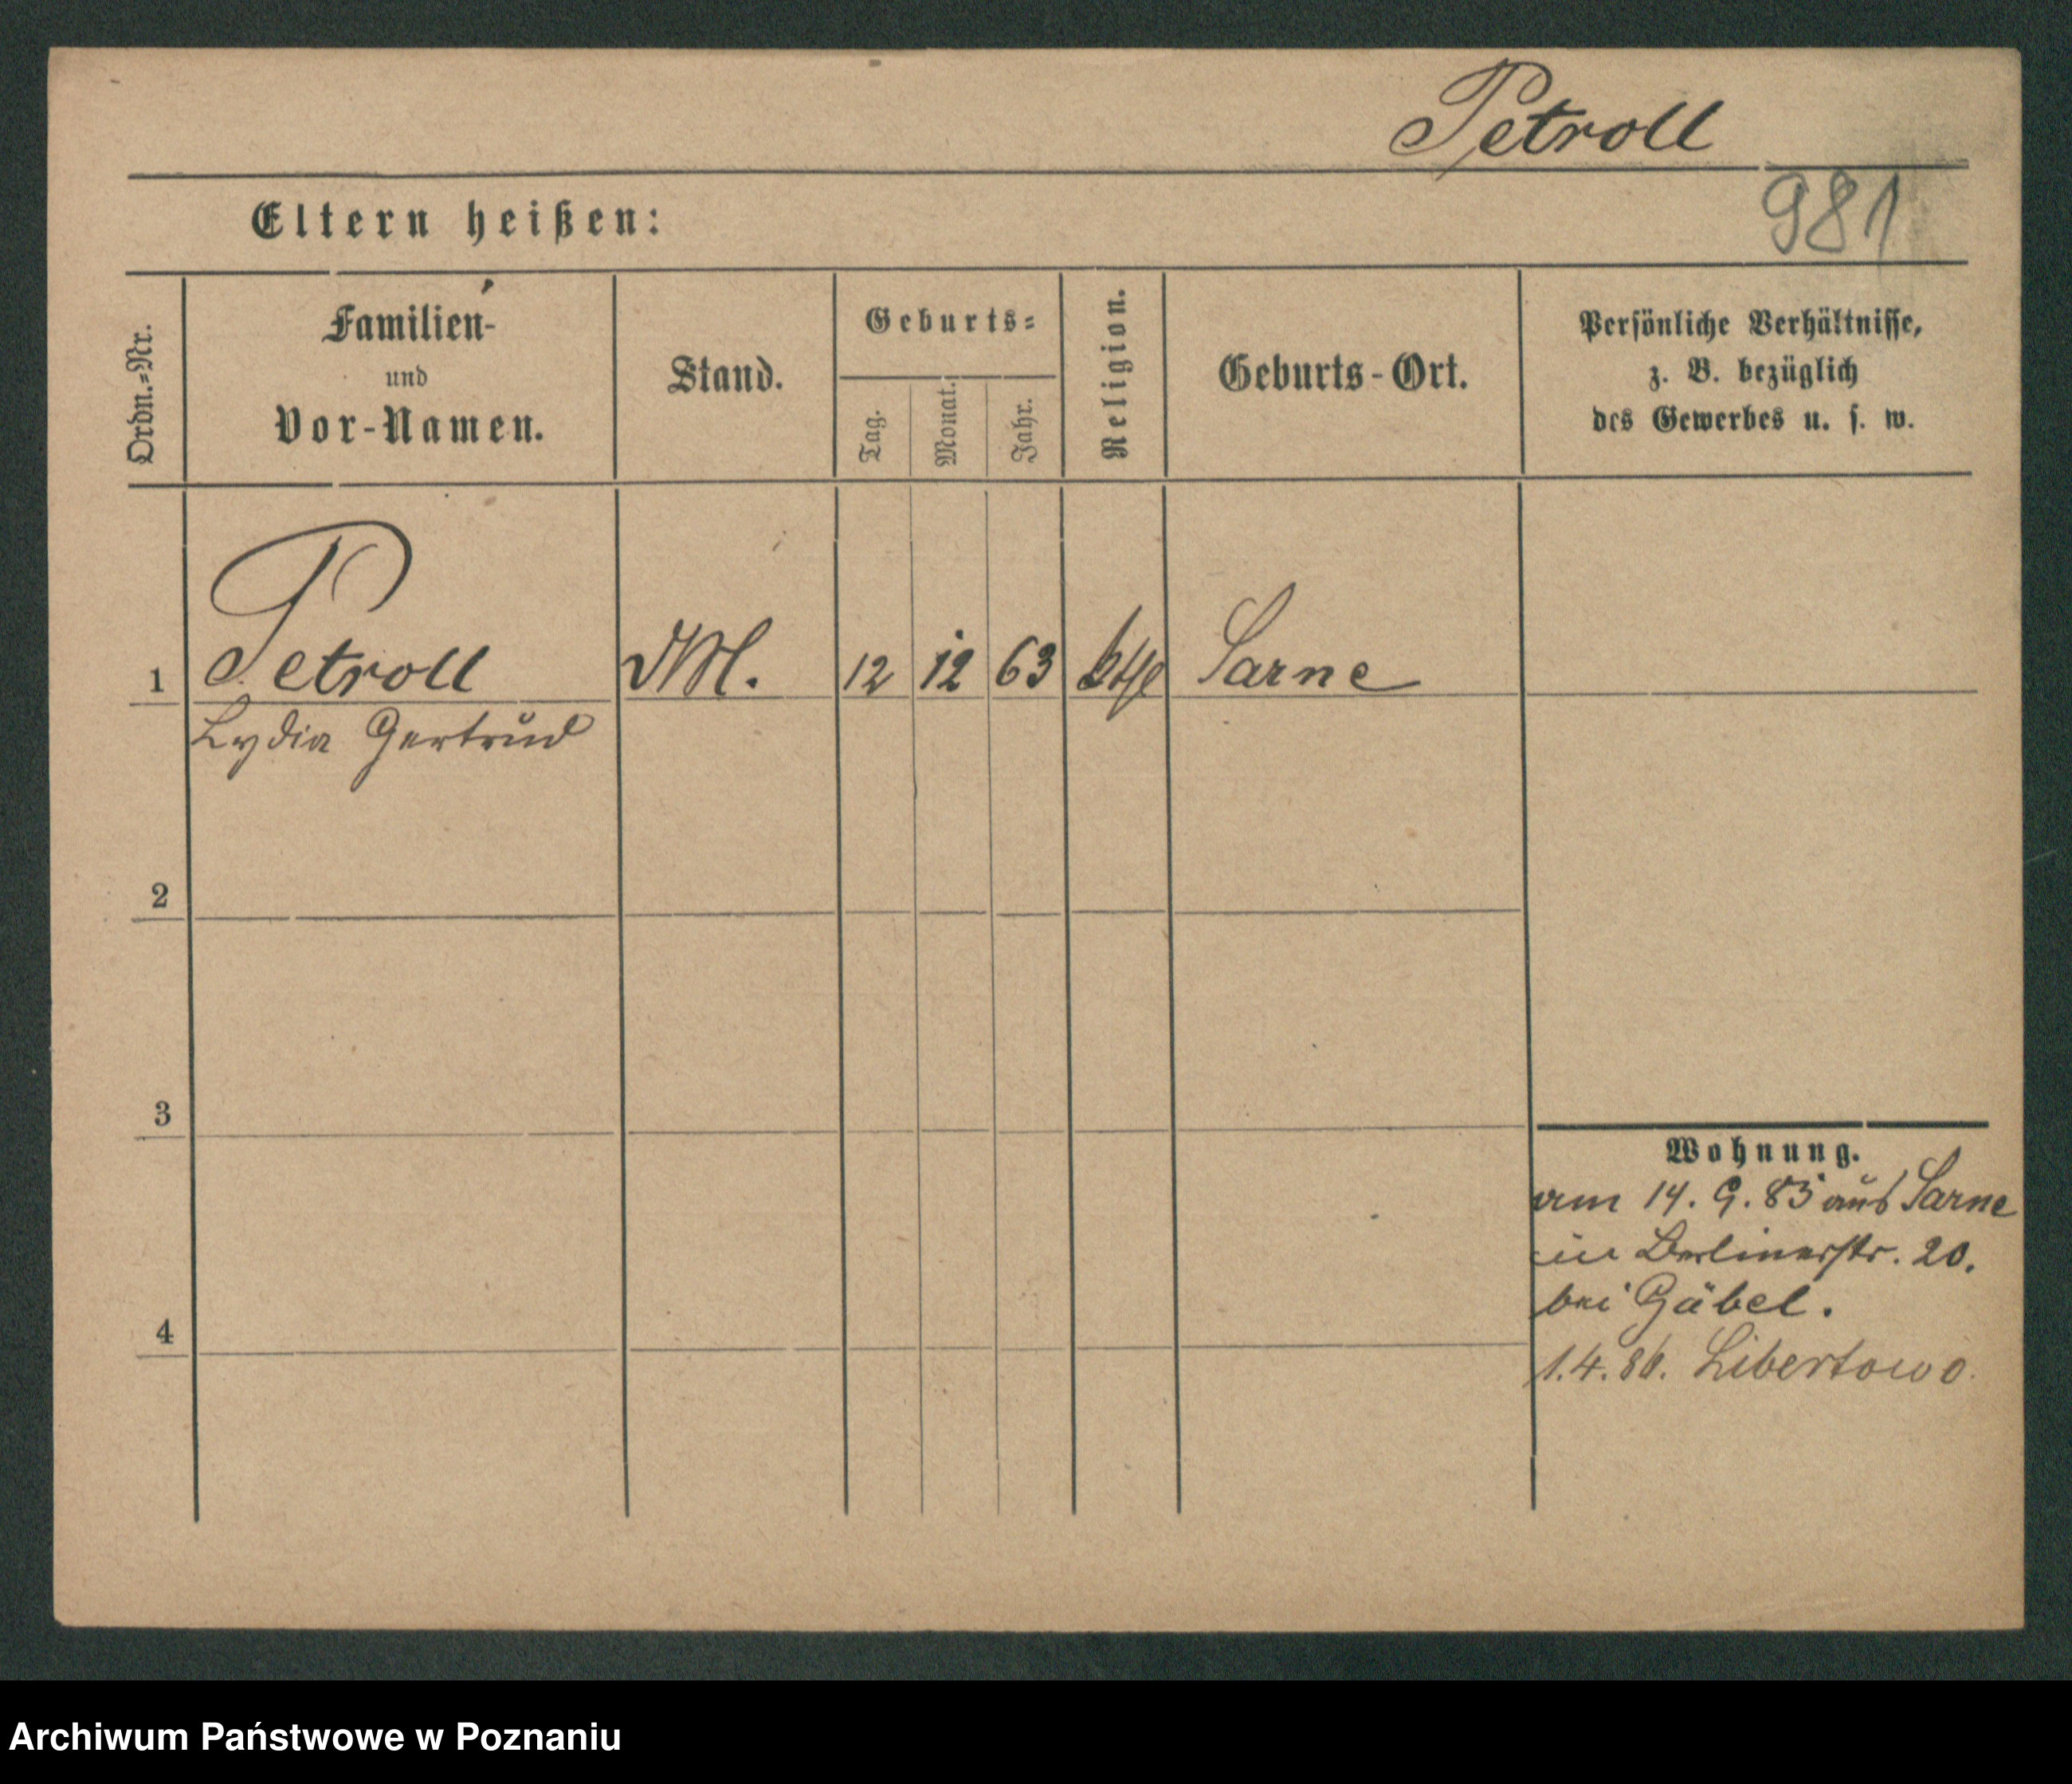 Petroll
981
Eltern heißen:
Ordn.=Nr.
Familien-
und
Vor-Namen.
Stand.
Geburts=
Tag.
Monat.
Jahr.
Religion.
Geburts-Ort.
Persönliche Verhältnisse,
z. B. bezüglich
des Gewerbes u. s. w.
1 Petroll 12 12 63 Sarne
Lydia Gertrud
2
3
4
Wohnung.
am 14. 9. 85 aus Sarne
in Berlinerstr. 20.
bei Gäbel.
1.4.86. Libertowo.
Archiwum Państwowe w Poznaniu